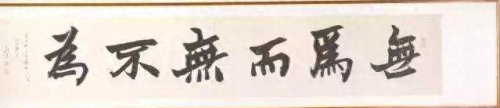 無爲而無不為